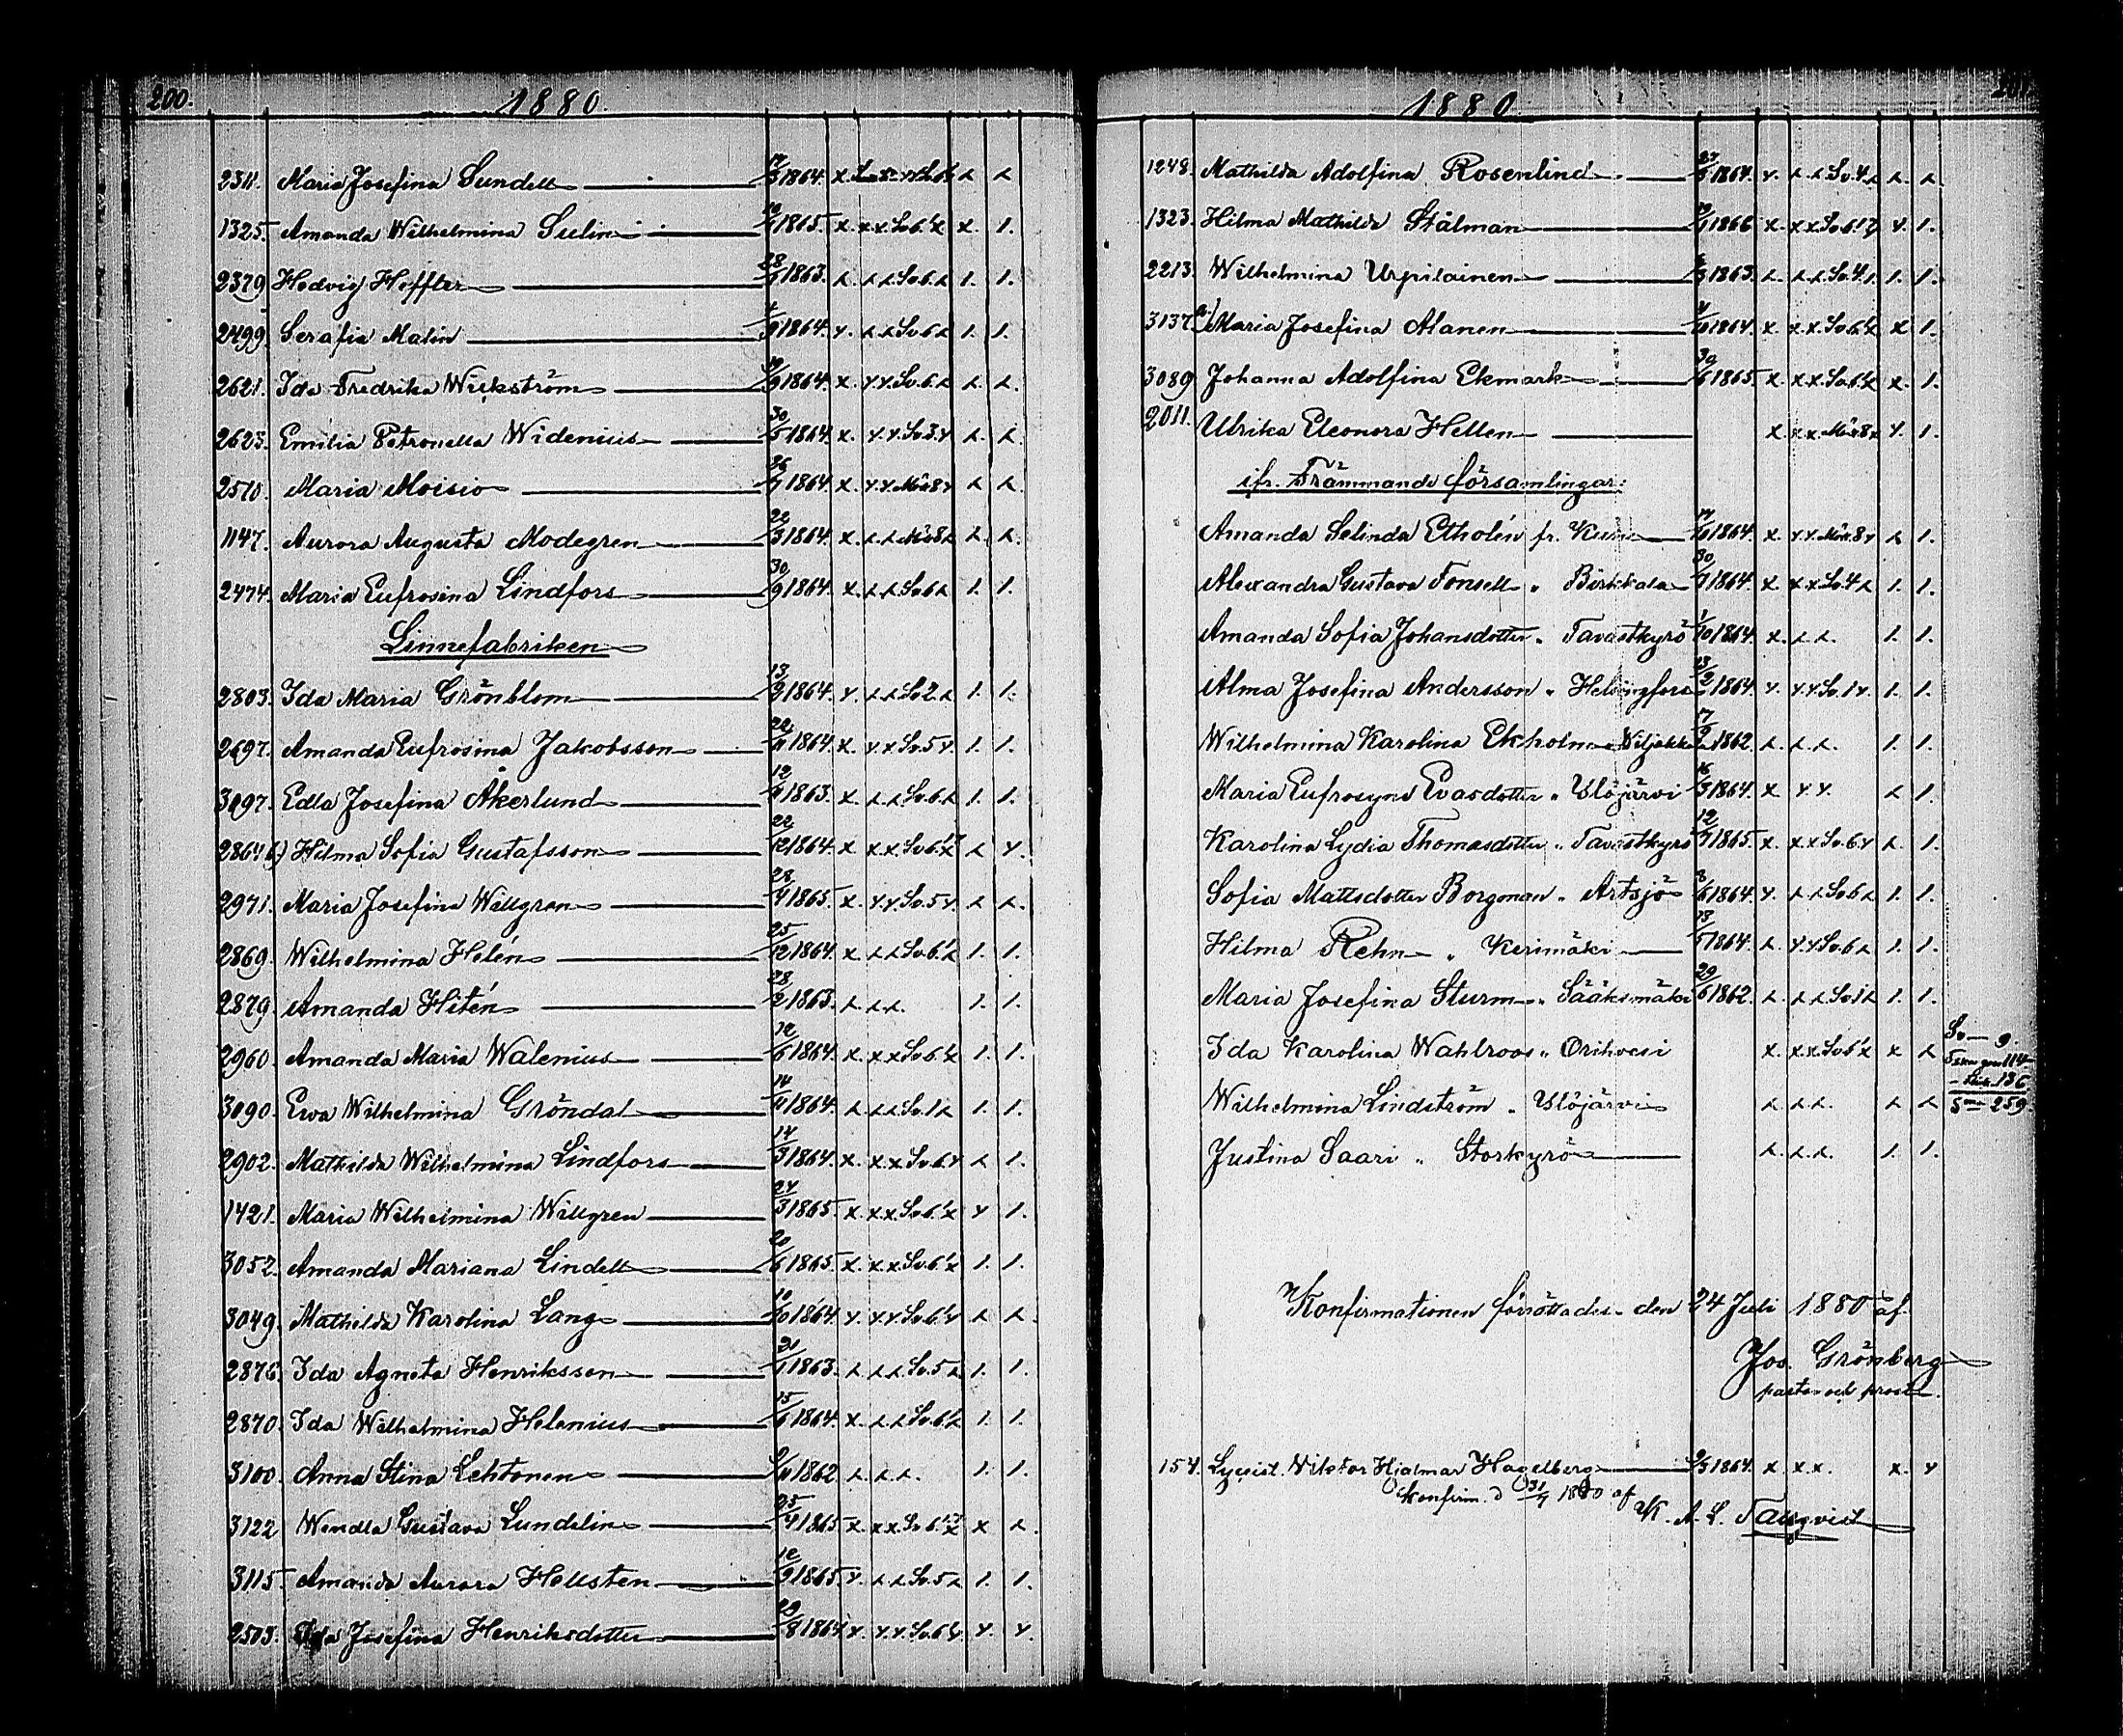 200.
1880.
2311. Maria Josefina Sundell 1864.
1325. Amanda Wilhelmina Sulin 1865. x. x x. Sv. 6. x x. 1.
2379 Hedvig Heffler 28 1863. Sv. 6. 1. 1.
2499. Serafia Malin 1864. Sv. 6 1. 1.
2621. Ida Fredrika Wickström 1864. x. Sv. 6.
2623. Emilia Petronella Widenius 30/5 1864. x. Sv. 3.
2510. Maria Moisio 26 1864. x.
1147. Aurora Augusta Modegren 22/3 1864. x.
2474. Maria Eufrosina Lindfors 30/9 1864. x. Sv. 6 1. 1.
Linnefabriken
2803. Ida Maria Grönblom 13/9 1864. Sv. 2. 1. 1.
2697. Amanda Eufrosina Jakobsson 22/11 1864. x. Sv. 5 1. 1.
3097. Edla Josefina Åkerlund 12 1863. x. Sv. 6. 1. 1.
2864 b) Hilma Sofia Gustafsson 22/12 1864. x x x. Sv. 6.
2971. Maria Josefina Willgren 28/4 1865. x. Sv. 5
2869. Wilhelmina Helén 25/12 1864. x. Sv. 6. 1. 1.
2879. Amanda Hitén 28/2 1863. 1. 1.
2960. Amanda Maria Walenius 12/6 1864. x. x x Sv. 6. 1. 1.
3090. Ewa Wilhelmina Gröndal 14/11 1864. Sv. 1 1. 1.
2902. Mathilda Wilhelmina Lindfors 14/3 1864. x. x x Sv. 6 1.
1421. Maria Wilhelmina Willgren 24/3 1865. x. x x. Sv. 6. 1.
3052. Amanda Mariana Lindell 20/6 1865. x. x x. Sv. 6. 1. 1.
3049. Mathilda Karolina Lang 10/10 1864. Sv. 6.
2876. Ida Agneta Henriksson 21 1863. Sv. 5 1. 1.
2870. Ida Wilhelmina Helenius 15/6 1864. x. Sv. 6. 1. 1.
3100. Anna Stina Lehtonen 9/11 1862 1. 1.
3122 Wendla Gustava Lundelin 25/4 1865 x. x x. Sv. 6. x
3115. Amanda Aurora Hellsten 12/9 1865. Sv. 5 1. 1.
2503. Ida Josefina Henriksdotter 29/8 1864 Sv. 6
201
1880.
1248. Mathilda Adolfina Rosenlind 27 1864. Sv. 4.
1323. Hilma Mathilda Stålman 19 1866 x. x x. Sv. 6. 1.
2213. Wilhelmina Urpilainen 1863. Sv. 4. 1. 1.
3137. a) Maria Josefina Alanen 4/10 1864. x. x x. Sv. 6. x 1.
3089 Johanna Adolfina Ekmark 30/6 1865. x. x x. Sv. 6. x. 1.
2011. Ulrika Eleonora Hellen x x x. 1.
ifr. Främmande församlingar:
Amanda Selinda Etholén fr. 17/10 1864. x. 1.
Alexandra Gustava Fonsell " Birkkala 30/7 1864. x. x x Sv. 4 1. 1.
Amanda Sofia Johansdotter " Tavastkyrö 1/10 1864. x. 1. 1.
Alma Josefina Andersson " Helsingfors 13/2 1864. Sv. 1 1. 1.
Wilhelmina Karolina Ekholm " Viljakkala 17/9 1862. 1. 1.
Maria Eufrosyne Evasdotter " Ylöjärvi 16/3 1864. x 1.
Karolina Lydia Thomasdotter " Tavastkyrö 12/7 1865. x. x x Sv. 6 1.
Sofia Mattsdotter Borgman " Artsjö 8/6 1864. Sv. 6 1. 1.
Hilma Rehn " Kerimäki 13/5 1864. Sv. 6 1. 1.
Maria Josefina Sturm " Sääksmäki 29/6 1862. Sv. 1. 1.
Ida Karolina Wahlroos " Orihvesi x. x x. Sv. 6 x
Wilhelmina Lindström " Ylöjärvi
Justina Saari " Storkyrö 1. 1.
Sv — 9.
114
136
S:ma 259.
Konfirmationen förrättades den 24 Juli 1880 af
Jos. Grönberg
pastor och prost.
154. Lyceist. Viktor Hjalmar Hagelberg 9/5 1864. x x x. x.
Konfirm. d 31/7 1880 af
K. A. L. Tallqvist